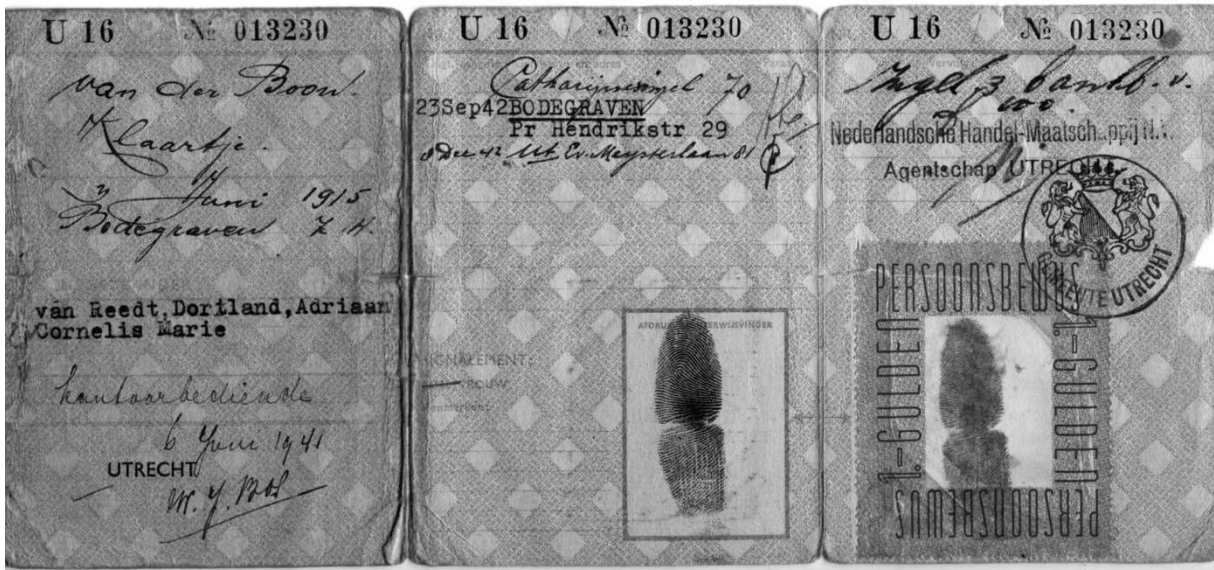 U 16 № 013230
van der Boon.
Klaartje.
Juni 1915
Bodegraven Z. H.
van Reedt,Dortland,Adriaan
Cornelis Marie
kantoorbediende
6 Juni 1941
UTRECHT
U 16 № 013230
Catharijnesingel 70
23Sep42 BODEGRAVEN
Pr Hendrikstr 29
8 Dec 42 Ut Ev. Meysterlaan 81
AFDRUK WIJSVINGER
SIGNALEMENT:
VROUW
U 16 № 013230
Nederlandsche Handel-Maatschappij N.V.
Agentschap UTRECHT
GEMEENTE UTRECHT
PERSOONSBEWIJS
1.-GULDEN
1.-GULDEN
PERSOONSBEWIJS